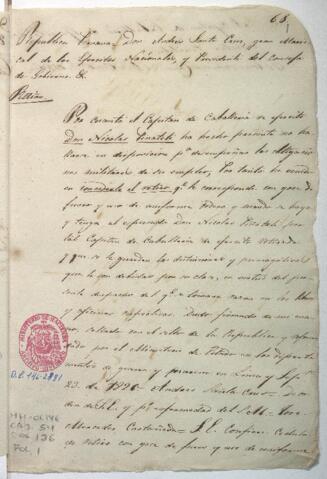 68
Republica Peruana, Don Andres Santa Cruz, gran Maris-
cal de los Ejercitos Nacionales, y Presidente del Consejo
de Gobierno &.
Retiro
Por cuanto el Capitan de Caballeria de ejercito
Don Nicolas ha hecho presente no ha
llarse en disposicion pª desempeñar las obligacio
nes militares de su empleo; Por tanto he venido
en concederle el retiro qª le corresponde con goce de
fuero y uso de uniforme. Ordeno y mando le haya
y tenga al espresado Don Nicolas por
tal Capitan de Caballeria de ejercito retirado
y que se le guarden las distinciones y prerrogativas
que le son debidas por su clase, en virtud del pre-
sente despacho del qª se tomara razon en los
y oficinas respectivas. Dado firmado de mi ma-
no, sellado con el sello de la Republica y refren-
dado por el Ministro de Estado en el departa-
mento de guerra y marina en Lima y
23. de 1826 = Andres Santa Cruz =
de S.E. y pª enfermedad del S. M.
Mercedes Castañeda = S.E. Confiere Cedula
de retiro con goce de fuero y uso de uniforme
MINISTERIO DE HACIENDA
O.L. 146-2781
HH-OL 146
CAJ. 54
DOC 136
FOL. 1